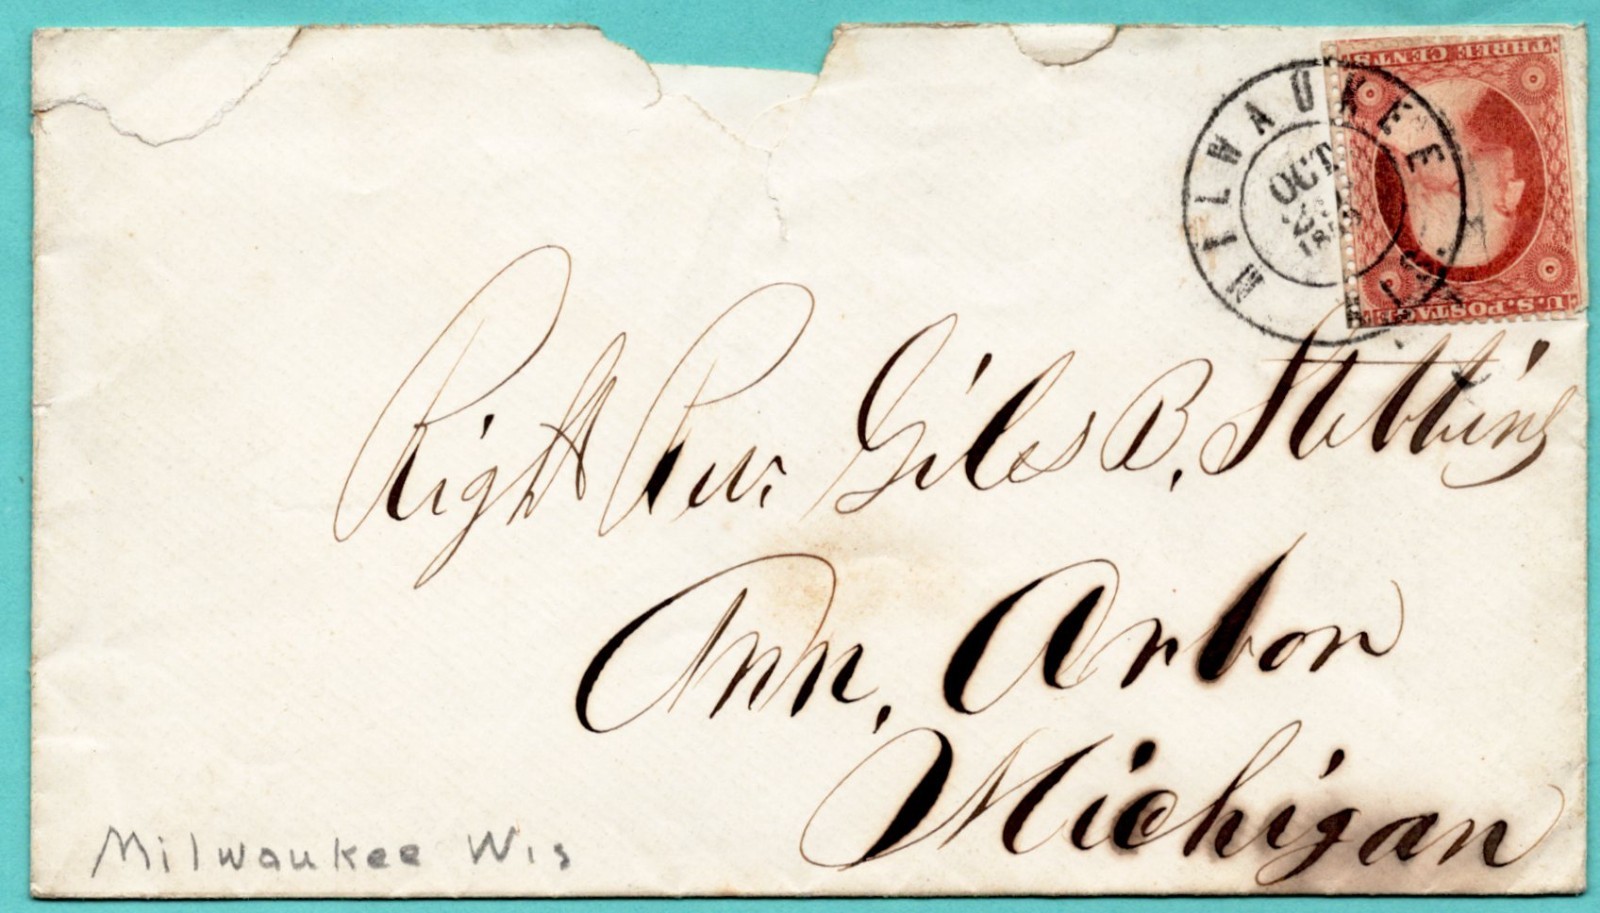 MILWAUKEE WIS.
OCT
THREE CENTS
U.S. POSTAGE
Right Rev. Giles B. Stebbins
Ann, Arbor
Michigan
Milwaukee Wis